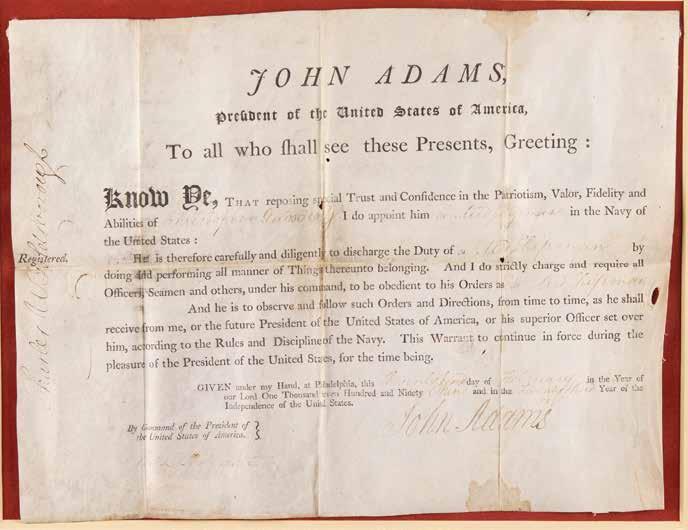 JOHN ADAMS,
Preſident of the United States of America,
To all who ſhall see these Presents, Greeting :
Know Ye, THAT reposing special Trust and Confidence in the Patriotism, Valor, Fidelity and
Abilities of I do appoint him a midshipman in the Navy of
the United States :
He is therefore carefully and diligently to discharge the Duty of a Midshipman by
doing and performing all manner of Things thereunto belonging. And I do strictly charge and require all
Officers, Seamen and others, under his command, to be obedient to his Orders as a Midshipman
And he is to observe and follow such Orders and Directions, from time to time, as he shall
receive from me, or the future President of the United States of America, or his superior Officer set over
him, according to the Rules and Discipline of the Navy. This Warrant to continue in force during the
pleasure of the President of the United States, for the time being.
GIVEN under my Hand, at Philadelphia, this day of February in the Year of
our Lord One Thousand seven Hundred and Ninety and in the Year of the
Independence of the United States.
John Adams
By Command of the President of
the United States of America.
Registered,